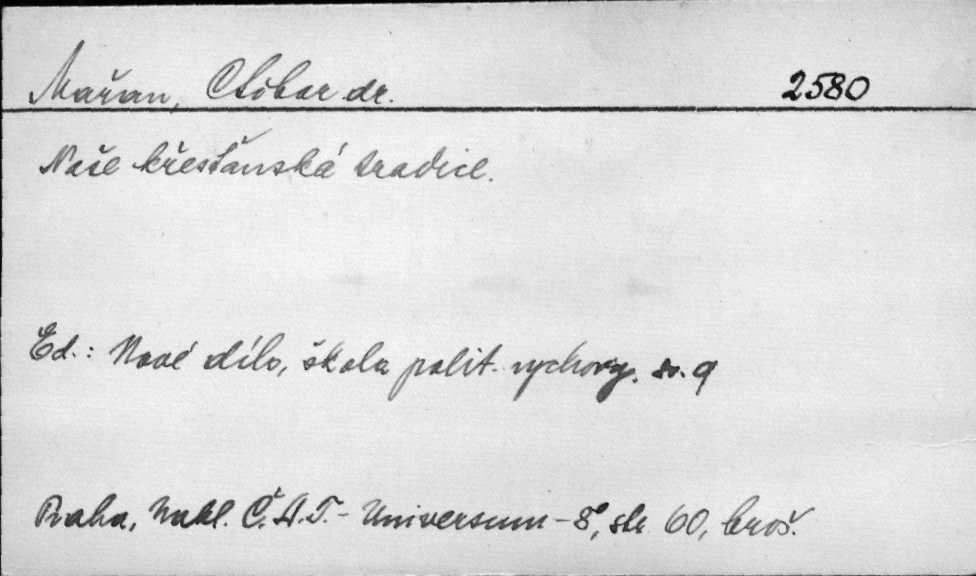 Mařan, Ctibor dr. 2580
Naše křesťanská tradice.
Ed.: Nové dílo, škola polit. výchovy. sv. 9
Praha, Nakl. Č.A.T. - Universum - 8°, str. 60, brož.